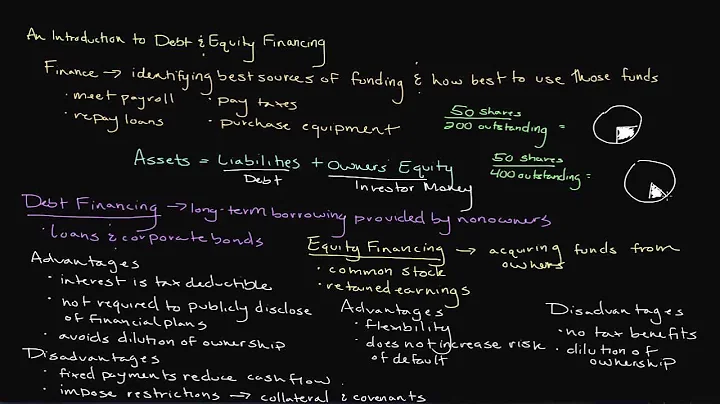 An Introduction to Debt & Equity Financing
Finance → identifying best sources of funding & how best to use those funds
· meet payroll · pay taxes
· repay loans · purchase equipment
50 shares
200 outstanding =
50 shares
400 outstanding =
Assets = Liabilities + Owners' Equity
Debt Investor Money
Debt Financing → long-term borrowing provided by nonowners
· loans & corporate bonds
Advantages
· interest is tax deductible
· not required to publicly disclose
of financial plans
· avoids dilution of ownership
Disadvantages
· fixed payments reduce cash flow
· impose restrictions → collateral & covenants
Equity Financing → acquring funds from
owners
· common stock
· retained earnings
Advantages
· flexibility
· does not increase risk
of default
Disadvantages
· no tax benefits
· dilution of
ownership